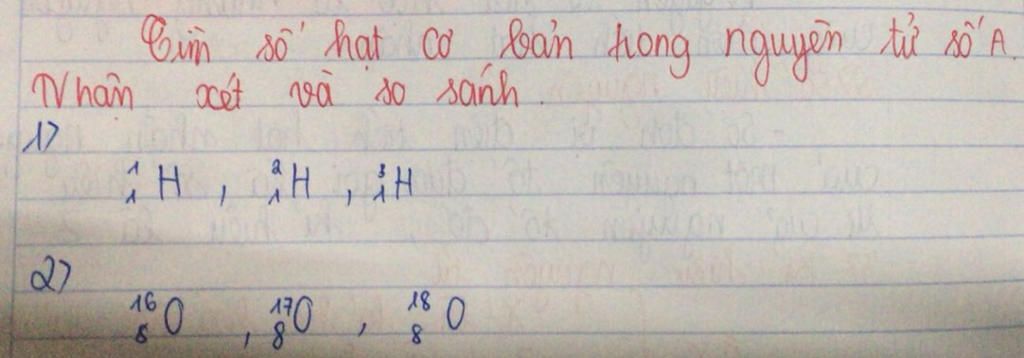 Tìm số hạt cơ bản trong nguyên tử số A.
Nhận xét và so sánh.
1)
¹₁H , ²₁H , ³₁H
2)
¹⁶₈O , ¹⁷₈O , ¹⁸₈O